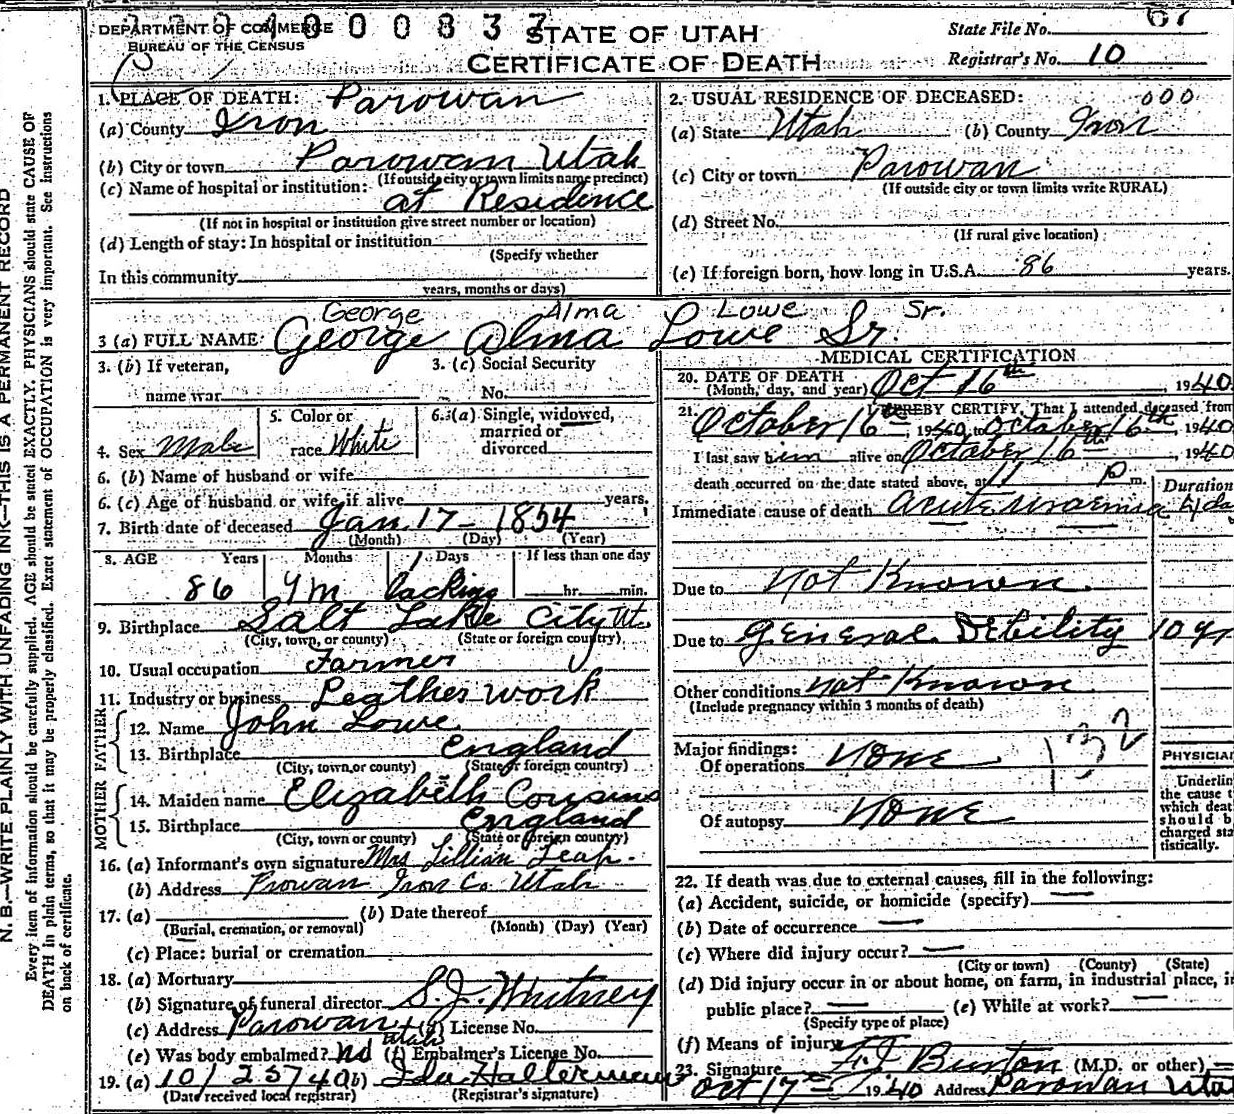 DEPARTMENT OF COMMERCE
BUREAU OF THE CENSUS
STATE OF UTAH
CERTIFICATE OF DEATH
State File No. 67
Registrar's No. 10
N. B.—WRITE PLAINLY WITH UNFADING INK—THIS IS A PERMANENT RECORD
Every item of information should be carefully supplied. AGE should be stated EXACTLY. PHYSICIANS should state CAUSE OF
DEATH in plain terms, so that it may be properly classified. Exact statement of OCCUPATION is very important. See instructions
on back of certificate.
1. PLACE OF DEATH: Parowan
(a) County Iron
(b) City or town Parowan Utah
(If outside city or town limits name precinct)
(c) Name of hospital or institution:
at Residence
(If not in hospital or institution give street number or location)
(d) Length of stay: In hospital or institution
(Specify whether
In this community
years, months or days)
2. USUAL RESIDENCE OF DECEASED: 000
(a) State Utah (b) County Iron
(c) City or town Parowan
(If outside city or town limits write RURAL)
(d) Street No.
(If rural give location)
(e) If foreign born, how long in U.S.A. 86 years.
George Alma Lowe Sr.
3 (a) FULL NAME George Alma Lowe Sr.
3. (b) If veteran,
name war
3. (c) Social Security
No.
4. Sex Male
5. Color or
race White
6. (a) Single, widowed,
married or
divorced
6. (b) Name of husband or wife
6. (c) Age of husband or wife if alive years.
7. Birth date of deceased Jan. 17 - 1854
(Month) (Day) (Year)
8. AGE Years Months Days If less than one day
86 9m 1 lacking hr. min.
9. Birthplace Salt Lake City Ut.
(City, town, or county) (State or foreign country)
10. Usual occupation Farmer
11. Industry or business Leather work
FATHER
12. Name John Lowe
13. Birthplace England
(City, town or county) (State or foreign country)
MOTHER
14. Maiden name Elizabeth Cousins
15. Birthplace England
(City, town or county) (State or foreign country)
16. (a) Informant's own signature Mrs Lillian Leap.
(b) Address Prowan Iron Co. Utah
17. (a) (b) Date thereof
(Burial, cremation, or removal) (Month) (Day) (Year)
(c) Place: burial or cremation
18. (a) Mortuary
(b) Signature of funeral director S. J. Whitney
(c) Address Parowan Utah (d) License No.
(e) Was body embalmed? no (f) Embalmer's License No.
19. (a) 10/25/40 (b) Ida Halterman
(Date received local registrar) (Registrar's signature)
MEDICAL CERTIFICATION
20. DATE OF DEATH
(Month, day, and year) Oct 16th, 1940
21. I HEREBY CERTIFY, That I attended deceased from
October 16th, 1940 to October 16th, 1940
I last saw him alive on October 16th, 1940
death occurred on the date stated above, at 11 P m. Duration
Immediate cause of death acute uraemia 4 da
Due to Not Known
Due to General Debility 10 yr
Other conditions not Known
(Include pregnancy within 3 months of death)
Major findings:
Of operations None
132
Of autopsy None
PHYSICIAN
Underline
the cause t
which deat
should b
charged sta
tistically.
22. If death was due to external causes, fill in the following:
(a) Accident, suicide, or homicide (specify) —
(b) Date of occurrence —
(c) Where did injury occur? —
(City or town) (County) (State)
(d) Did injury occur in or about home, on farm, in industrial place, i
public place? — (e) While at work? —
(Specify type of place)
(f) Means of injury
23. Signature Burton (M.D. or other) —
Oct 17th 1940 Address Parowan Utah